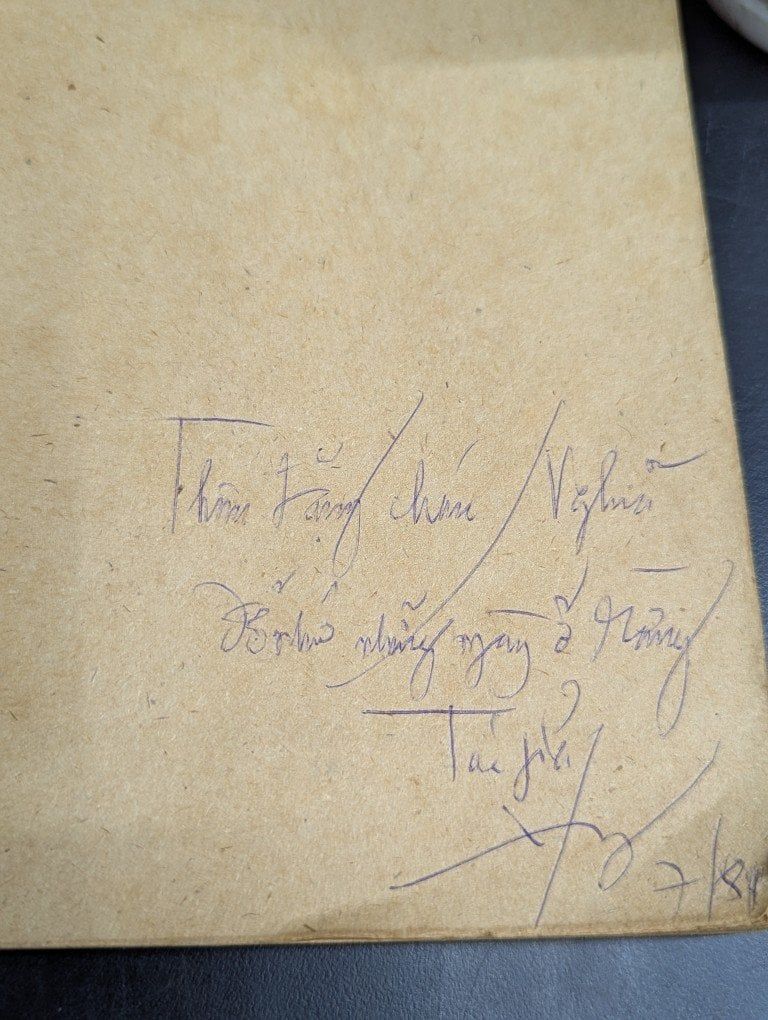 Thân tặng cháu Nghĩa
Để nhớ những ngày ở
Tác giả
7/84